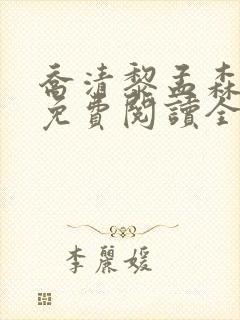 喬清黎孟森
免費閱讀全
李麗媛